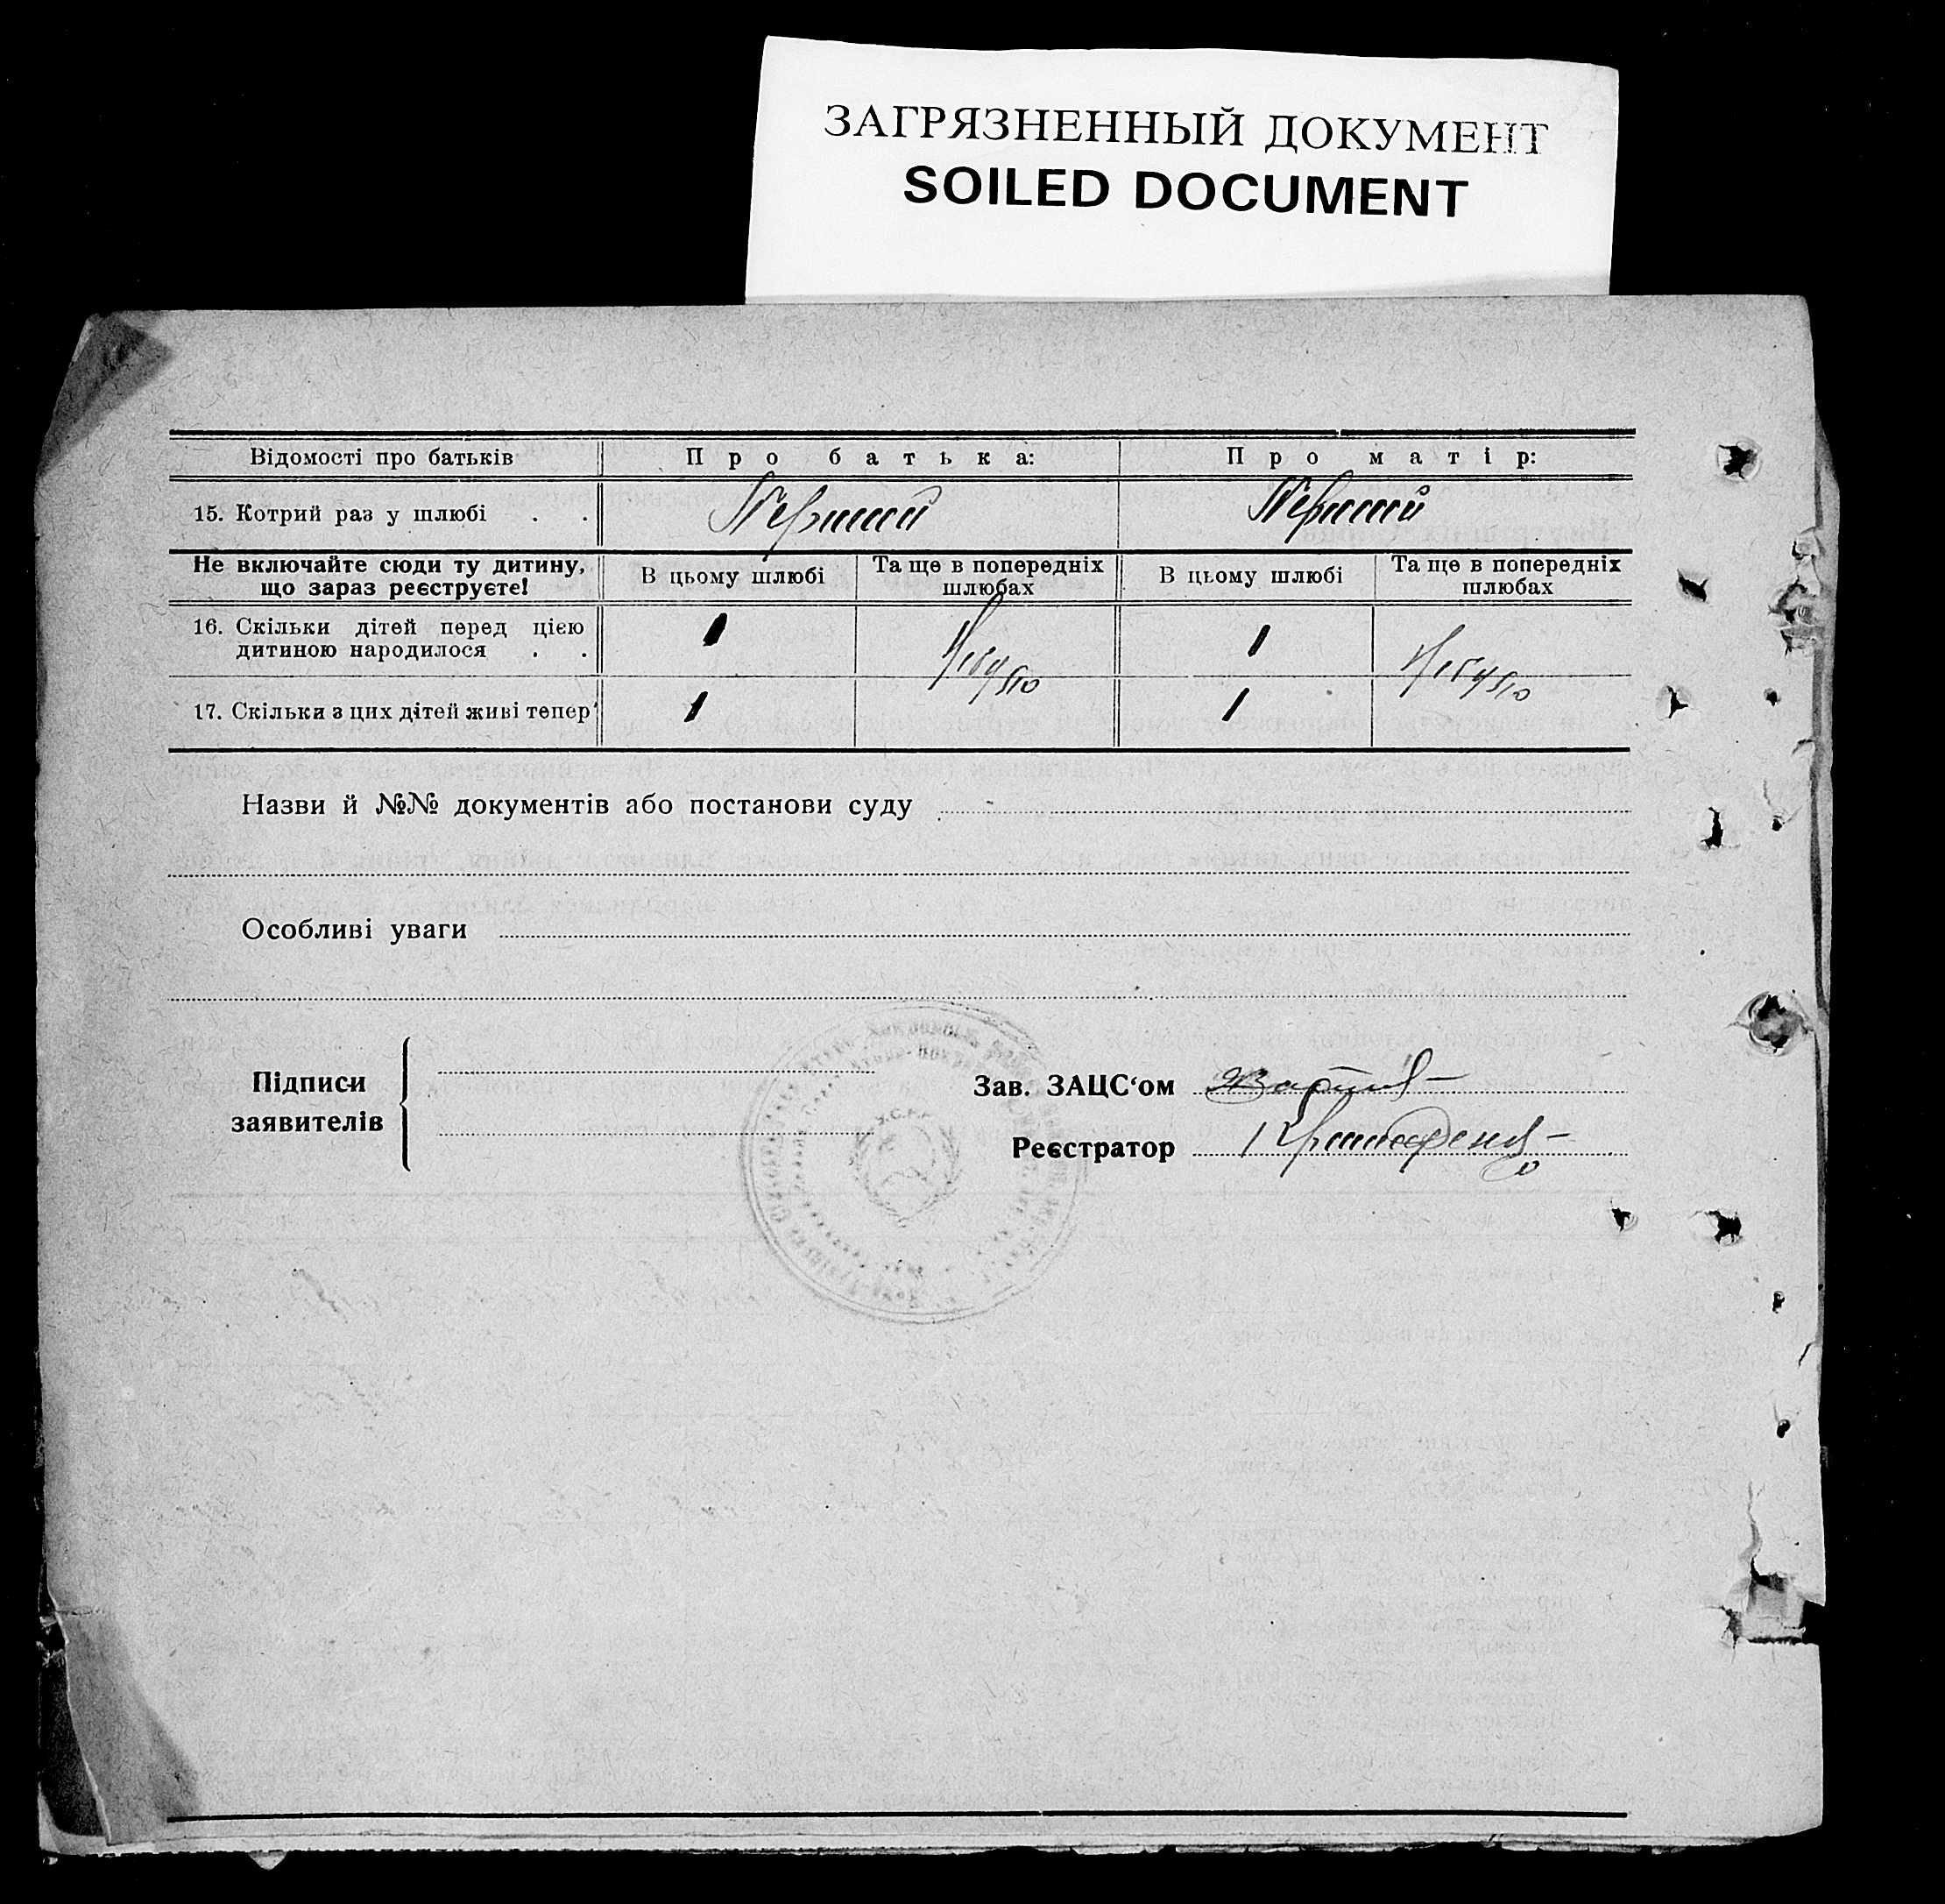 ЗАГРЯЗНЕННЫЙ ДОКУМЕНТ
SOILED DOCUMENT
Відомості про батьків Про батька: Про матір:
15. Котрий раз у шлюбі . . Перший Перший
Не включайте сюди ту дитину, що зараз реєструєте! В цьому шлюбі Та ще в попередніх шлюбах В цьому шлюбі Та ще в попередніх шлюбах
16. Скільки дітей перед цією
дитиною народилося . . 1 Небуло 1 Небуло
17. Скільки з цих дітей живі тепер 1 1
Назви й №№ документів або постанови суду
Особливі уваги
Підписи
заявителів
Зав. ЗАЦС‘ом
Реєстратор
У.С.Р.Р.